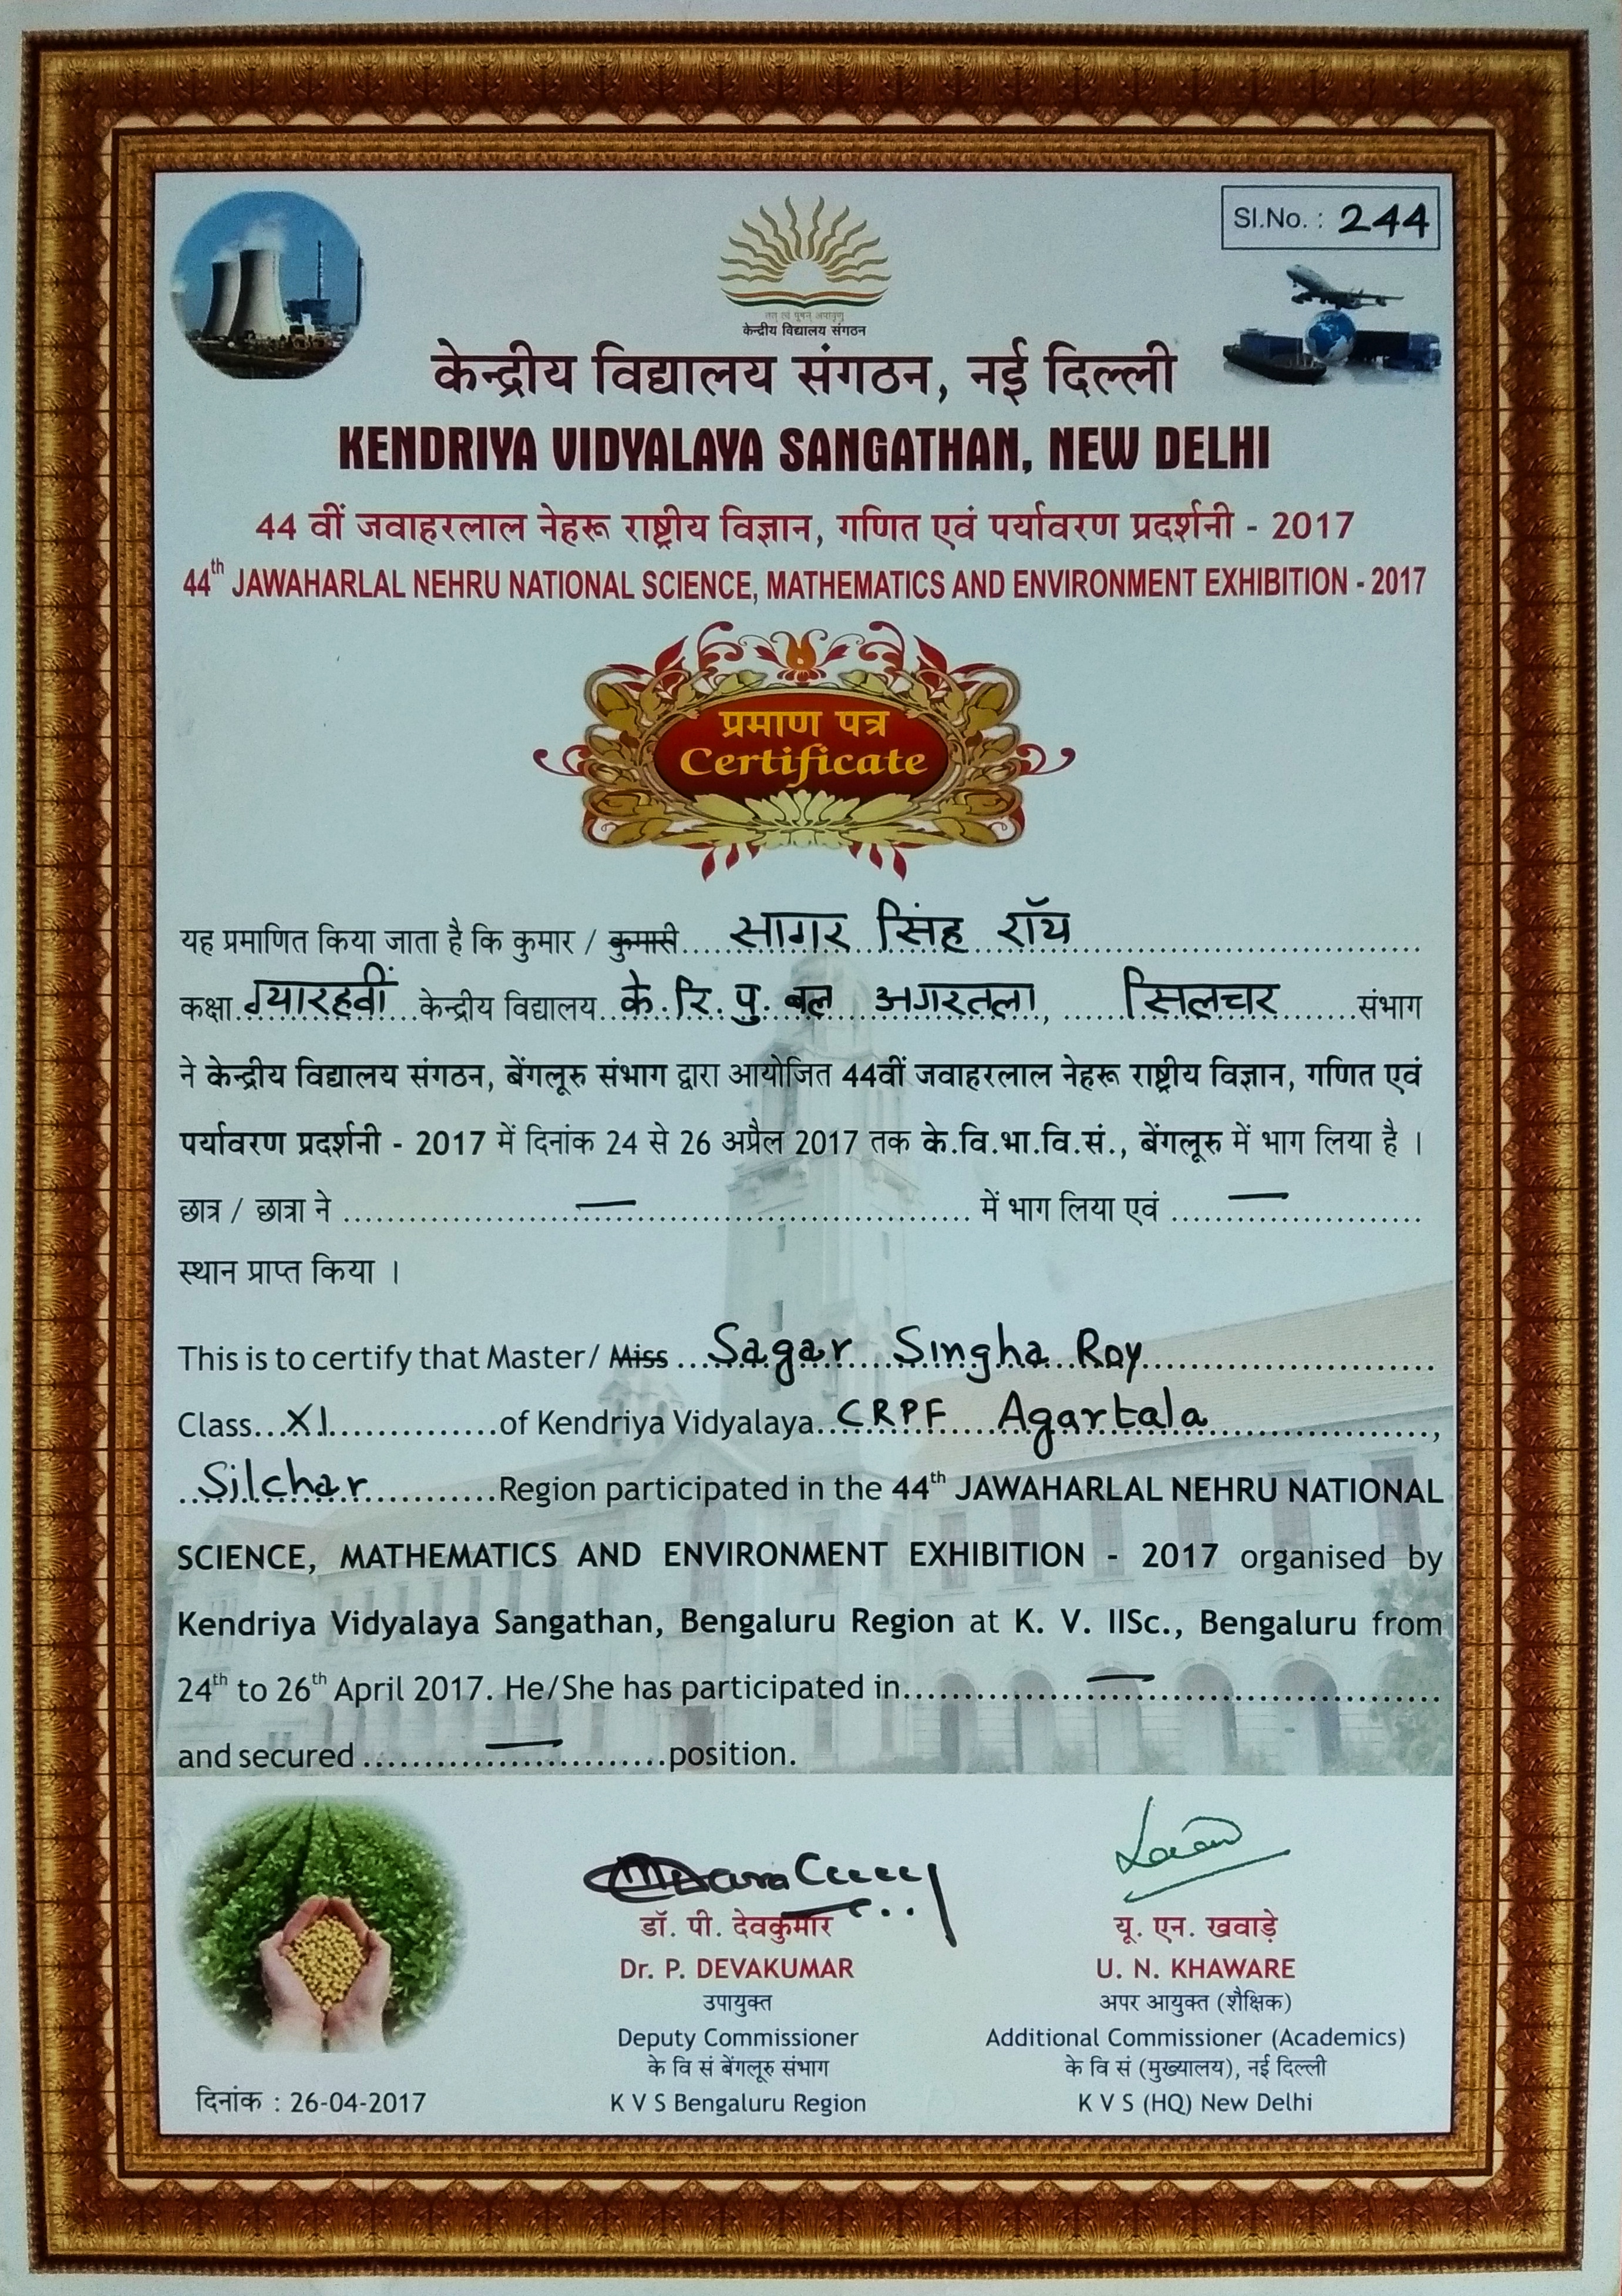 Sl.No. : 244
तत् त्वं पूषन् अपावृणु
केन्द्रीय विद्यालय संगठन
केन्द्रीय विद्यालय संगठन, नई दिल्ली
KENDRIYA VIDYALAYA SANGATHAN, NEW DELHI
44 वीं जवाहरलाल नेहरू राष्ट्रीय विज्ञान, गणित एवं पर्यावरण प्रदर्शनी - 2017
44th JAWAHARLAL NEHRU NATIONAL SCIENCE, MATHEMATICS AND ENVIRONMENT EXHIBITION - 2017
प्रमाण पत्र
Certificate
यह प्रमाणित किया जाता है कि कुमार / कुमारी सागर सिंह रॉय
कक्षा ग्यारहवीं केन्द्रीय विद्यालय के. रि. पु. बल अगरतला, सिलचर संभाग
ने केन्द्रीय विद्यालय संगठन, बेंगलूरु संभाग द्वारा आयोजित 44वीं जवाहरलाल नेहरू राष्ट्रीय विज्ञान, गणित एवं
पर्यावरण प्रदर्शनी - 2017 में दिनांक 24 से 26 अप्रैल 2017 तक के.वि.भा.वि.सं., बेंगलूरु में भाग लिया है ।
छात्र / छात्रा ने — में भाग लिया एवं —
स्थान प्राप्त किया ।
This is to certify that Master/ Miss Sagar Singha Roy
Class XI of Kendriya Vidyalaya CRPF Agartala,
Silchar Region participated in the 44th JAWAHARLAL NEHRU NATIONAL
SCIENCE, MATHEMATICS AND ENVIRONMENT EXHIBITION - 2017 organised by
Kendriya Vidyalaya Sangathan, Bengaluru Region at K. V. IISc., Bengaluru from
24th to 26th April 2017. He/She has participated in —
and secured — position.
डॉ. पी. देवकुमार
Dr. P. DEVAKUMAR
उपायुक्त
Deputy Commissioner
के वि सं बेंगलूरु संभाग
K V S Bengaluru Region
यू. एन. खवाड़े
U. N. KHAWARE
अपर आयुक्त (शैक्षिक)
Additional Commissioner (Academics)
के वि सं (मुख्यालय), नई दिल्ली
K V S (HQ) New Delhi
दिनांक : 26-04-2017